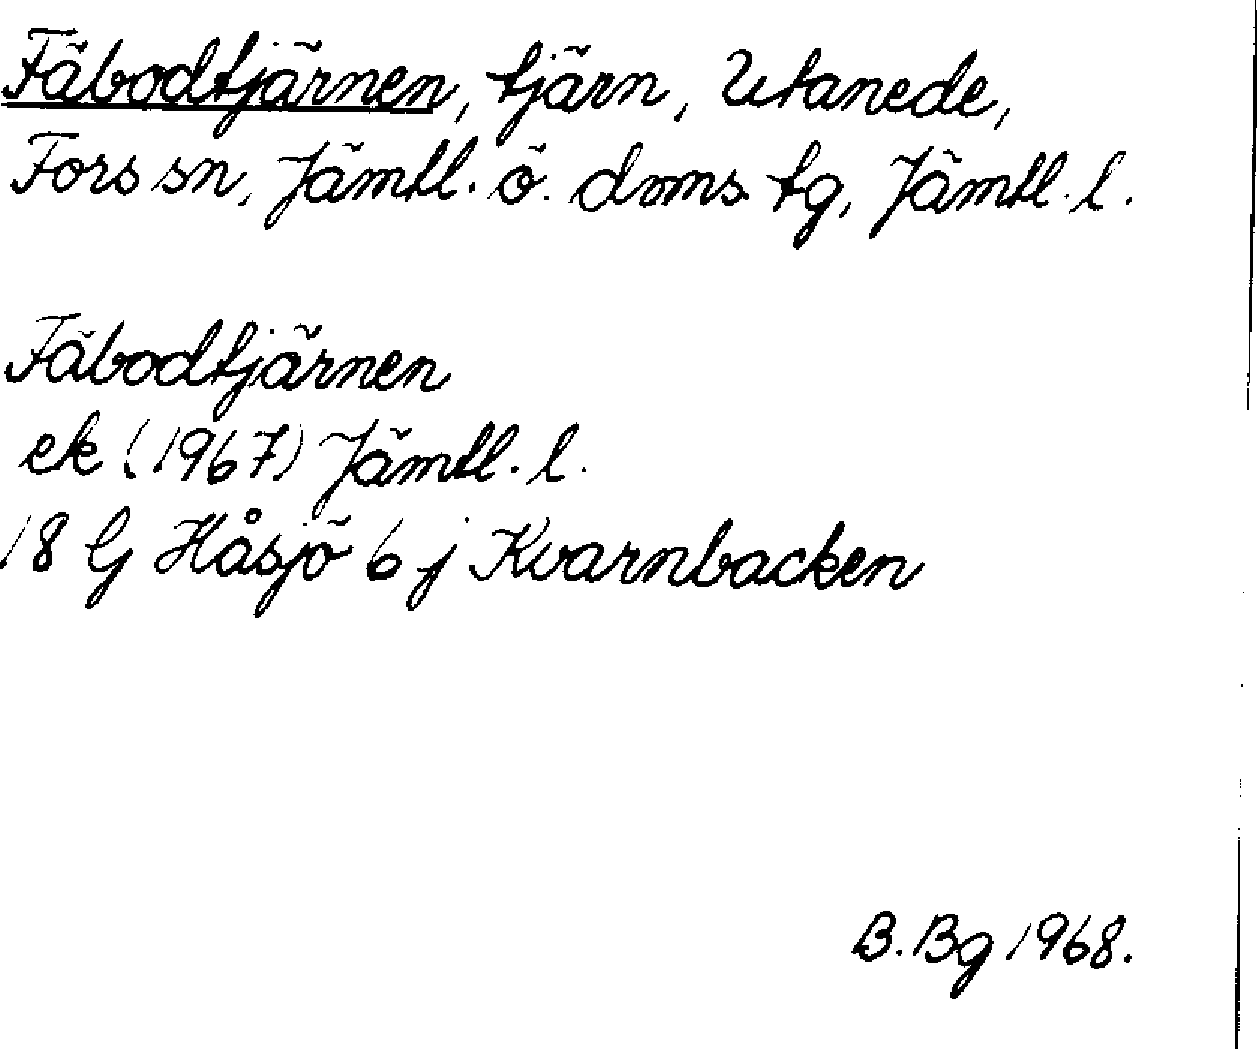 Fäbodtjärnen, tjärn, Utanede,
Fors sn, Jämtl. ö. doms. tg, Jämtl. l.
Fäbodtjärnen
ek (1967) Jämtl. l.
18 G Håsjö 6 j Kvarnbacken
B. Bg 1968.